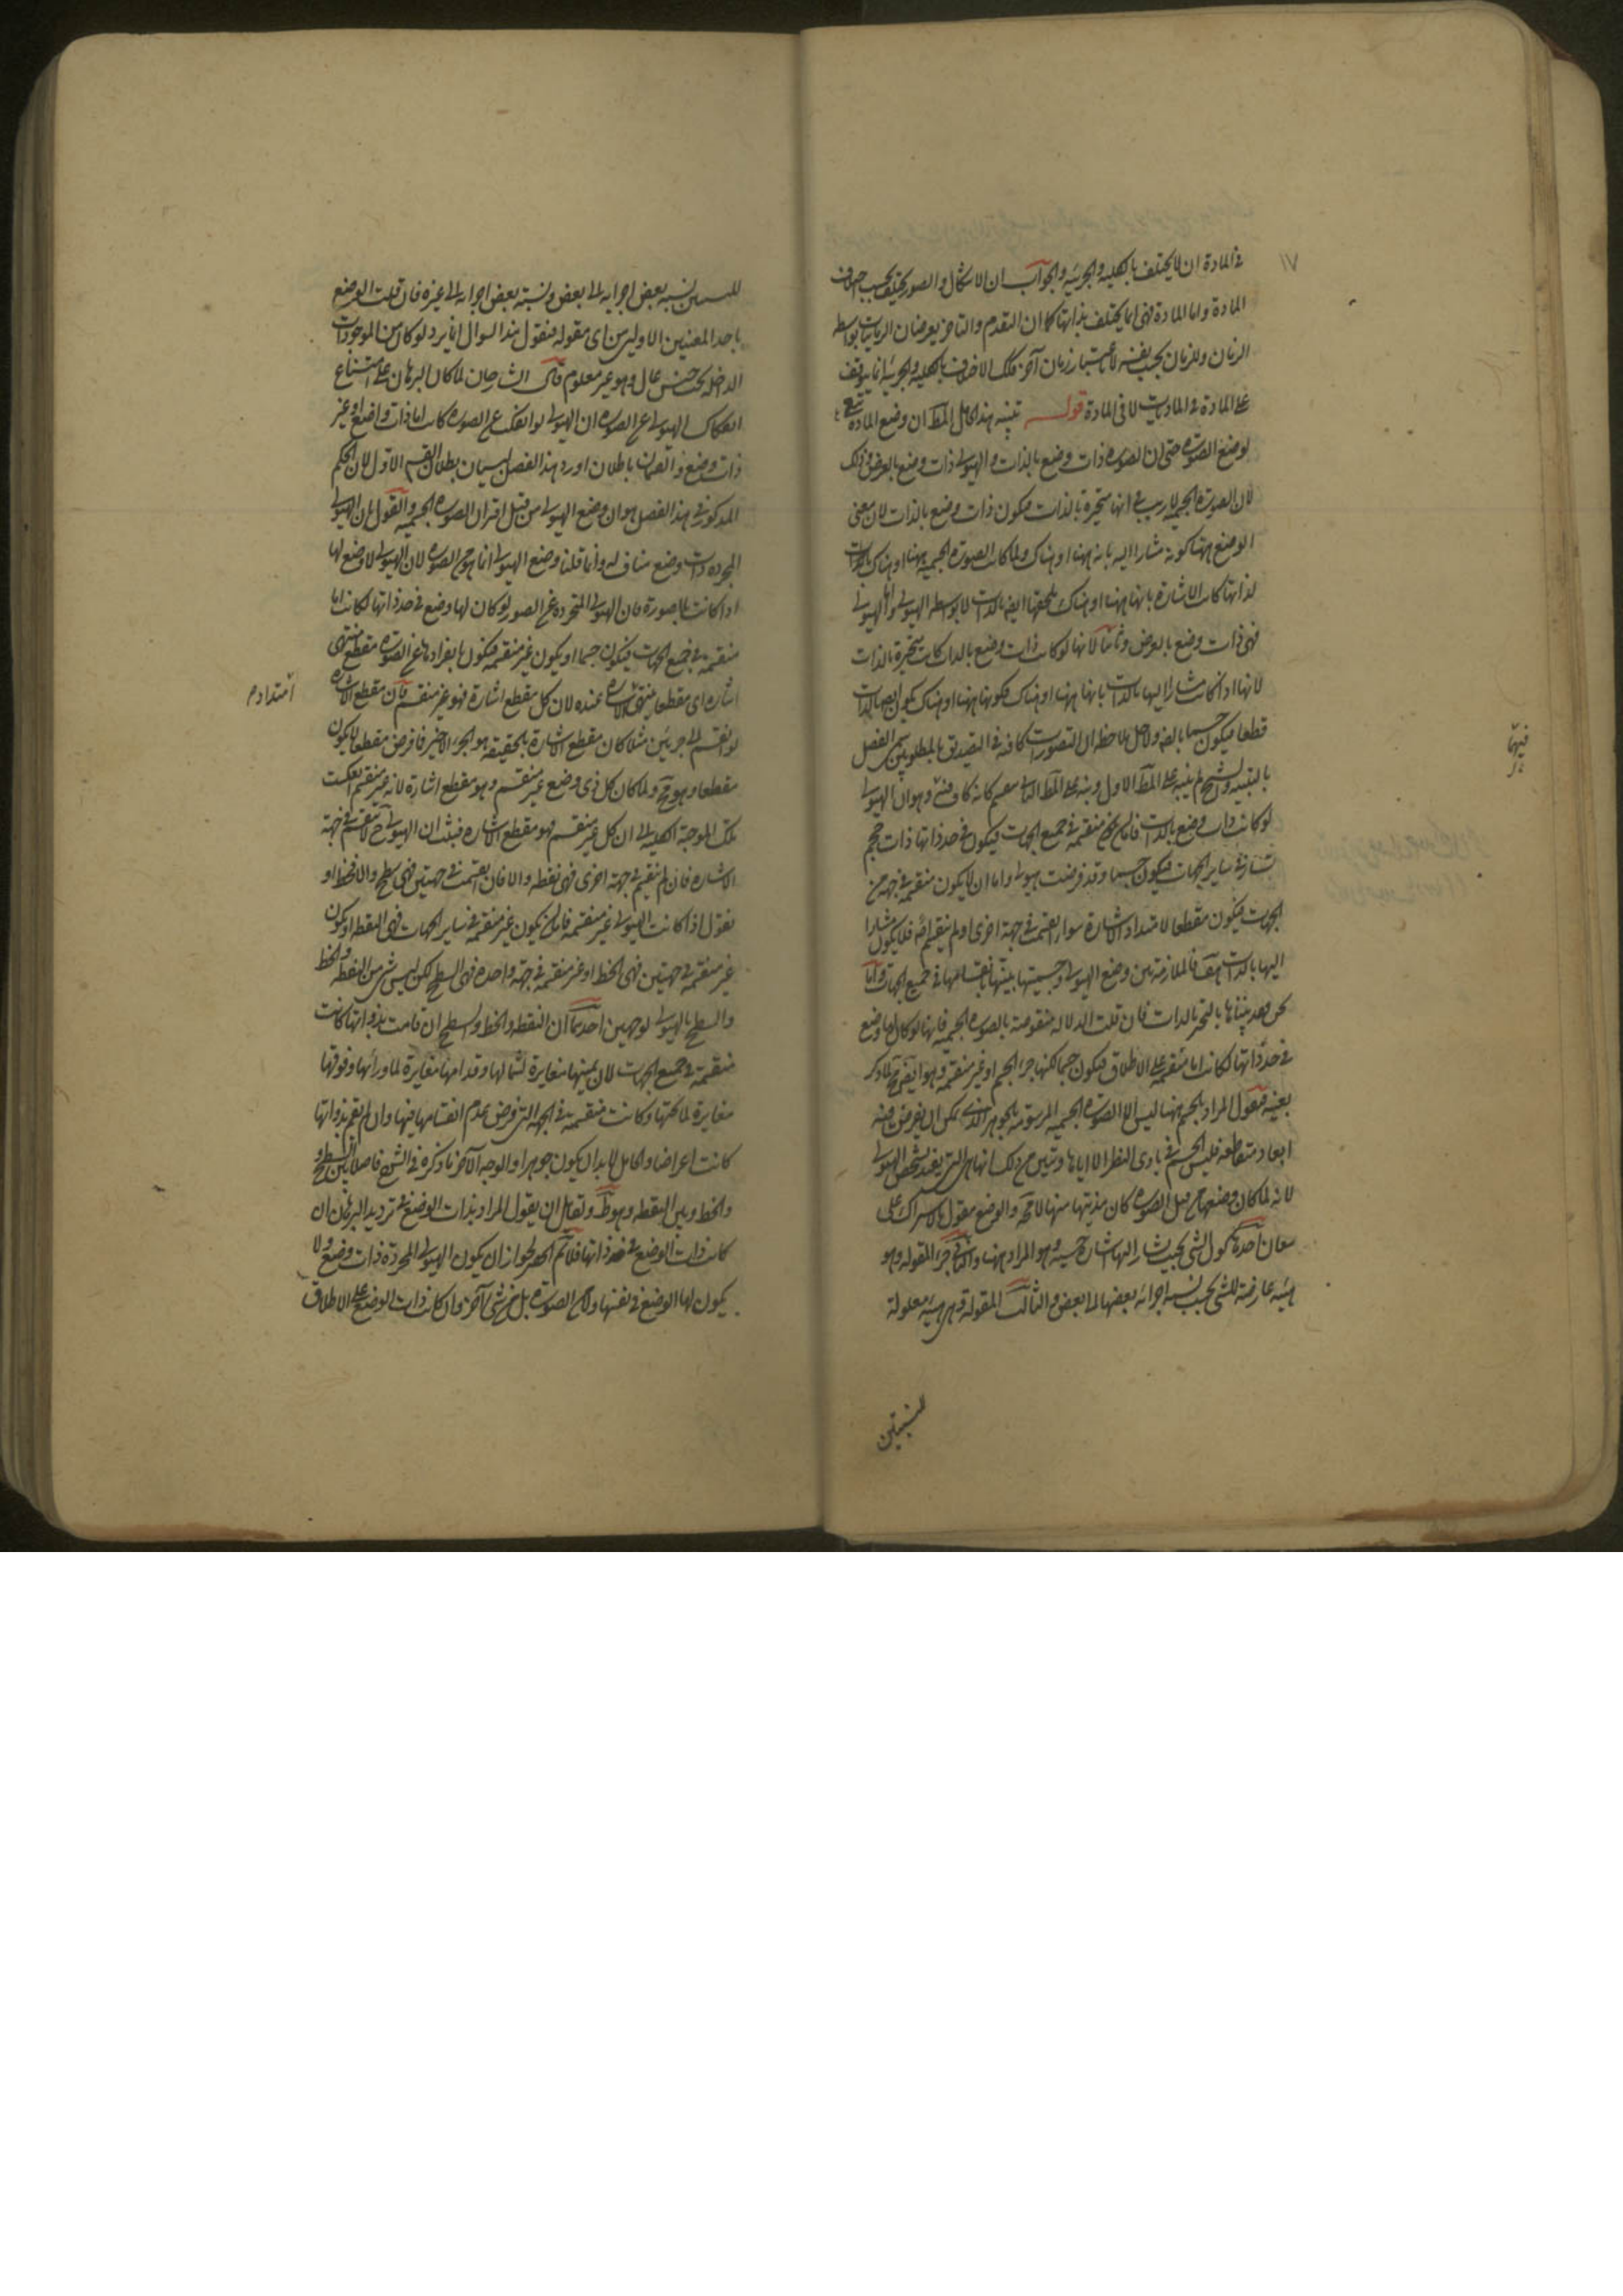 ١٧
في المادة ان لا يختلف بالكلية والجزئية والجواب ان الاشكال والصور يختلف بحسب اختلاف
المادة واما المادة فهي انما يختلف بذاتها كما ان التقدم والتأخر يعرضان الزمانيات بواسطة
الزمان وللزمان بحسب نفسه لا باعتبار زمان آخر فتلك الاختلاف بالكلية والجزئية انما يتوقف
على المادة في الماديات لا في المادة قوله تنبيه هذا الحامل المط ان وضع المادة تبع
لوضع الصورة حتى ان الصورة ذات وضع بالذات والهيولى ذات وضع بالعرض وذلك
لان الصورة الجسمية لا ريب في انها متحيزة بالذات فيكون ذات وضع بالذات لان معنى
الوضع ههنا كونه مشارا اليه بانه ههنا او هناك ولما كانت الصورة الجسمية ههنا او هناك بالذات
لذاتها كانت الاشارة بانها ههنا او هناك يلحقها ايضا بالذات لا بواسطة الهيولى واما الهيولى
فهي ذات وضع بالعرض وثانيا لانها لو كانت ذات وضع بالذات كانت متحيزة بالذات
لانها اذا كانت مشارا اليها بالذات بانها ههنا او هناك فكونها ههنا او هناك يكون ايضا بالذات
قطعا فيكون جسما بالضرورة ولاجل ملاحظة ان التصورات كافة في التصديق بالمطلوبين سمى الفصل
بالتنبيه والشيخ لم ينبه على المط الاول ونبه على المط الثاني بقسمة كانه كاف فيه وهو ان الهيولى
لو كانت ذات وضع بالذات فاما ان يكون منقسمة في جميع الجهات فيكون في حد ذاتها ذات حجم
سارية في ساير الجهات فيكون جسما وقد فرضت هيولى واما ان لا يكون منقسمة في جهة من
الجهات فيكون مقطعا لامتداد الاشارة سواء انقسمت في جهة اخرى او لم ينقسم اصلا فلا يكون مشارا
اليها بالذات هف فالملازمة بين وضع الهيولى وجسميتها بينها بانقسامها في جميع الجهات واما
نحن فقد بيناها بالتحيز بالذات فان قلت الدلالة منقوضة بالصورة الجسمية فانها لو كان لها وضع
في حد ذاتها لكانت اما منقسمة على الاطلاق فيكون جسما لكنها جزء الجسم او غير منقسمة وهو ايضا مح لما ذكر
بعينه فنقول المراد بالجسم ههنا ليس الا الصورة الجسمية المرسومة بالجوهر الذي يمكن ان يفرض فيه
ابعاد متقاطعة فليس الجسم في بادي النظر الا اياها وتبين من ذلك انها هي التي يفيد تشخص الهيولى
لانه لما كان وضعها من قبل الصورة كان هذيتها منها لا محة والوضع مقول بالاشتراك على
معان احدها كون الشئ بحيث يشار اليه اشارة حسية وهو المراد ههنا والثاني جزء المقولة وهو
هيئة عارضة للشئ بحسب نسبة اجزائه بعضها الى بعض والثالث المقولة وهي هيئة معلولة
للنسبتين
فيها
للنسبتين نسبة بعض اجزايه الى بعض ونسبة بعض اجزايه الى غيره فان قلت الوضع
باحد المعنيين الاولين من اي مقولة فنقول هذا السوال انما يرد لو كان من الموجودات
الداخلة تحت جنس عال وهو غير معلوم قال الشارحان لما كان البرهان على امتناع
انفكاك الهيولى عن الصورة ان الهيولى لو انفكت عن الصورة كانت اما ذات وضع او غير
ذات وضع والقسمان باطلان اورد هذا الفصل لبيان بطلان القسم الاول لان الحكم
المذكور في هذا الفصل هو ان وضع الهيولى من قبل اقتران الصورة الجسمية والقول بان الهيولى
المجردة ذات وضع مناف له وانما قلنا وضع الهيولى انما هو من الصورة لان الهيولى لا وضع لها
اذا كانت بلا صورة فان الهيولى المتجردة عن الصور لو كان لها وضع في حد ذاتها لكانت اما
منقسمة في جميع الجهات فيكون جسما او يكون غير منقسمة فيكون بانفرادها عن الصورة مقطع منتهى
اشارة اي مقطعا ينتهي الاشارة عنده لان كل مقطع اشارة فهو غير منقسم فان مقطع الاشارة
امتداد م
لو انقسم الى جزئين مثلا كان مقطع الاشارة بالحقيقة هو الجزء الاخير فما فرض مقطعا لا يكون
مقطعا وهو مح ولما كان كل ذي وضع غير منقسم وهو مقطع اشارة لانه غير منقسم انعكست
تلك الموجبة الكلية الى ان كل غير منقسم فهو مقطع الاشارة فثبت ان الهيولى ح لا تنقسم في جهة
الاشارة فان لم تنقسم في جهة اخرى فهي نقطة والا فان انقسمت في جهتين فهي سطح والا فخط او
نقول اذا كانت الهيولى غير منقسمة فاما ان يكون غير منقسمة في ساير الجهات فهي النقطة او يكون
غير منقسمة في جهتين فهي الخط او غير منقسمة في جهة واحدة فهي السطح لكن ليس شئ من النقطة والخط
والسطح بالهيولى لوجهين احدهما ان النقطة والخط والسطح ان قامت بذواتها كانت
منقسمة في جميع الجهات لان يمينها مغايرة لشمالها وقدامها مغايرة لما ورائها وفوقها
مغايرة لما تحتها وكانت منقسمة في الجهة التي فرض عدم انقسامها فيها وان لم تقم بذواتها
كانت اعراضا والحامل لا بد ان يكون جوهرا والوجه الآخر ما ذكره في الشرح فاصلا بين السطح و
والخط وبين النقطة وهو ظ ولقائل ان يقول المراد بذات الوضع في ترديد البرهان ان
كانت ذات الوضع في حد ذاتها فلا تم الحصر لجواز ان يكون الهيولى المجردة ذات وضع ولا
يكون لها الوضع في نفسها ولا من الصورة بل من شئ آخر وان كانت ذات الوضع على الاطلاق